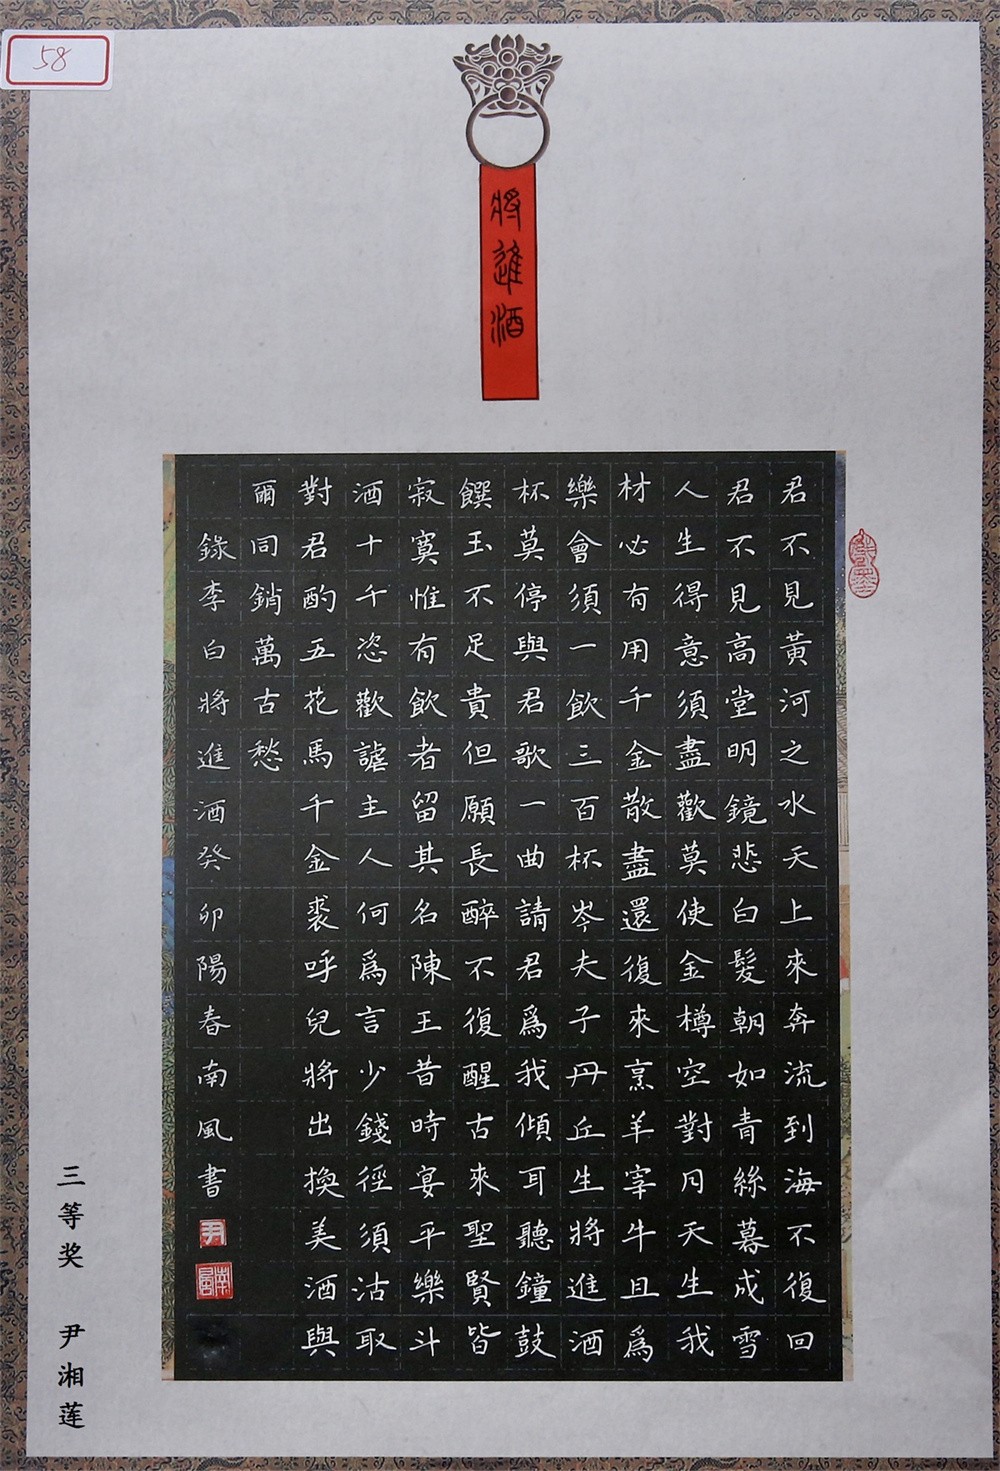 58
將進酒
君不見黃河之水天上來奔流到海不復回
君不見高堂明鏡悲白髮朝如青絲暮成雪
人生得意須盡歡莫使金樽空對月天生我
材必有用千金散盡還復來烹羊宰牛且爲
樂會須一飲三百杯岑夫子丹丘生將進酒
杯莫停與君歌一曲請君爲我傾耳聽鐘鼓
饌玉不足貴但願長醉不復醒古來聖賢皆
寂寞惟有飲者留其名陳王昔時宴平樂斗
酒十千恣歡謔主人何爲言少錢徑須沽取
對君酌五花馬千金裘呼兒將出換美酒與
爾同銷萬古愁
錄李白將進酒癸卯陽春南風書
尹
南風
三等奖 尹湘莲